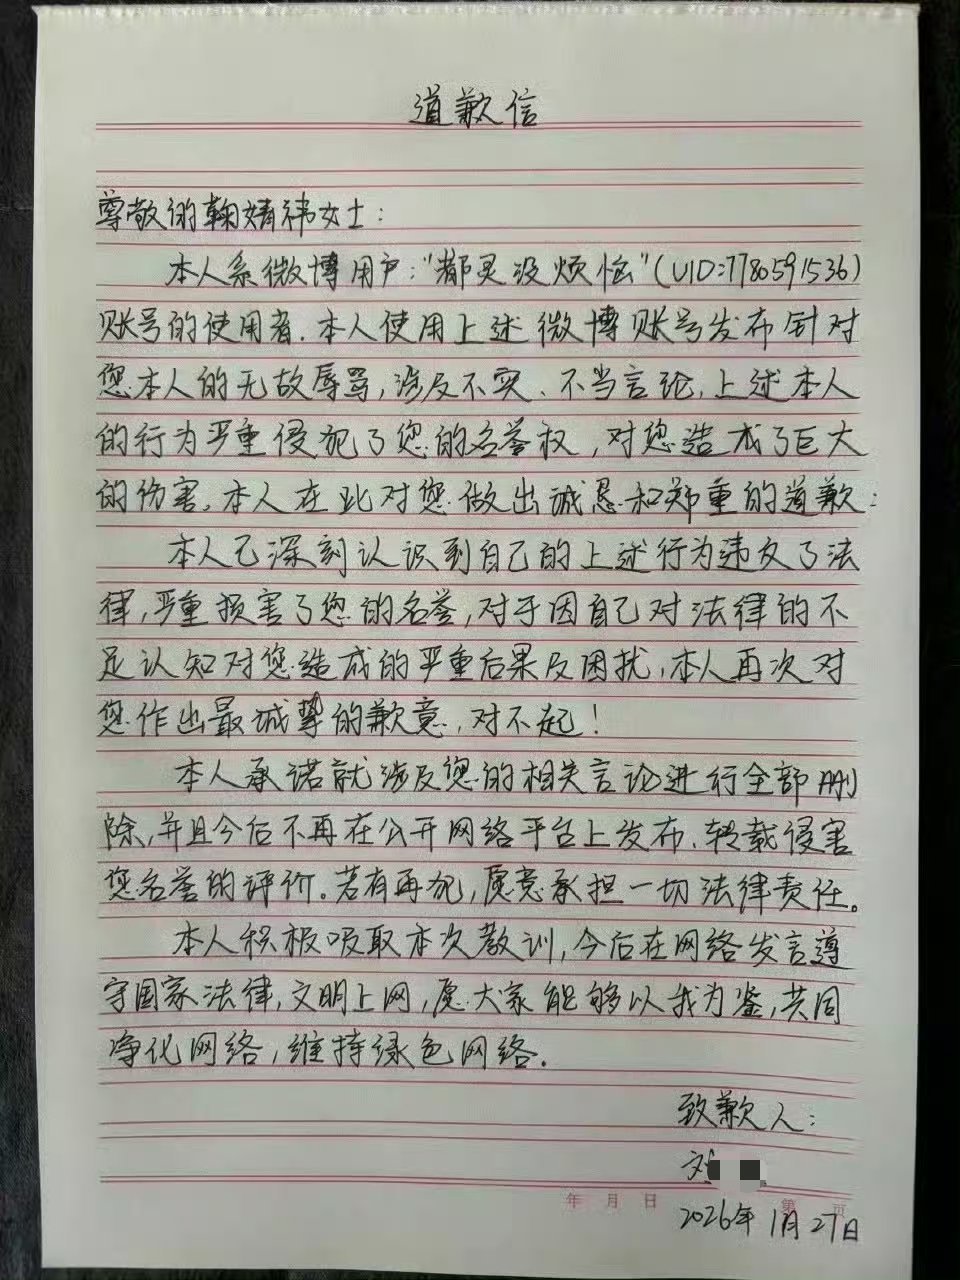 道歉信
尊敬的鞠婧祎女士：
本人系微博用户："都灵没烦恼"(UID:7780591536)
账号的使用者.本人使用上述微博账号发布针对
您本人的无故辱骂,涉及不实、不当言论,上述本人
的行为严重侵犯了您的名誉权,对您造成了巨大
的伤害。本人在此对您做出诚恳和郑重的道歉:
本人已深刻认识到自己的上述行为违反了法
律,严重损害了您的名誉,对于因自己对法律的不
足认知对您造成的严重后果及困扰,本人再次对
您作出最诚挚的歉意,对不起!
本人承诺就涉及您的相关言论进行全部删
除,并且今后不再在公开网络平台上发布、转载侵害
您名誉的评价。若有再犯,愿意承担一切法律责任。
本人积极吸取本次教训,今后在网络发言遵
守国家法律,文明上网,愿大家能够以我为鉴,共同
净化网络,维持绿色网络.
致歉人:
刘
年 月 日 第 页
2026年1月27日